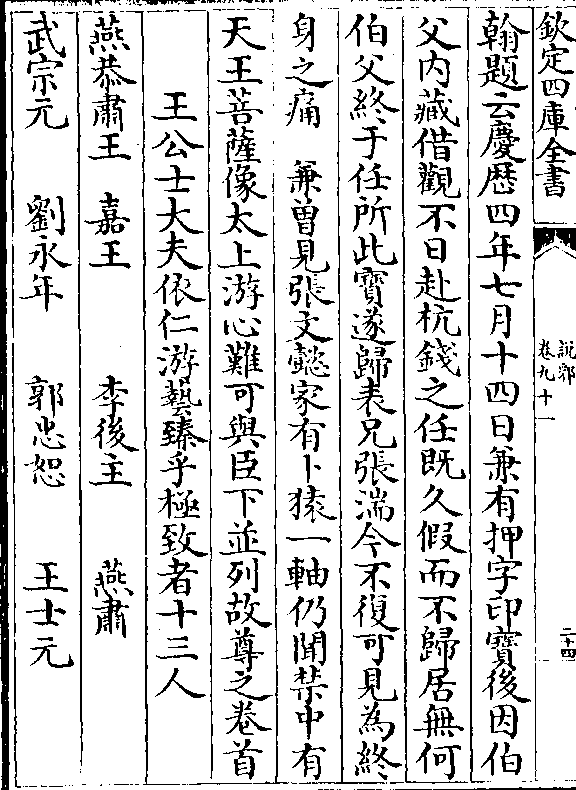 欽定四庫全書
說郛
卷九十一
二十四
翰題云慶歴四年七月十四日兼有押字印寶後因伯
父内藏借觀不日赴杭錢之任既久假而不歸居無何
伯父終于任所此寶遂歸表兄張湍今不復可見為終
身之痛 兼曽見張文懿家有卜猿一軸仍聞禁中有
天王菩薩像太上游心難可與臣下並列故尊之卷首
王公士大夫依仁游藝臻乎極致者十三人
燕恭肅王 嘉王 李後主 燕肅
武宗元 劉永年 郭忠恕 王士元